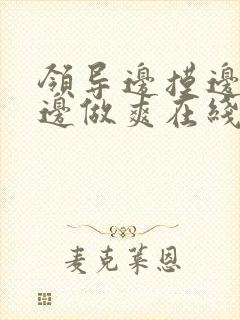 领导邊摸邊
邊做爽在綫
麦克莱恩